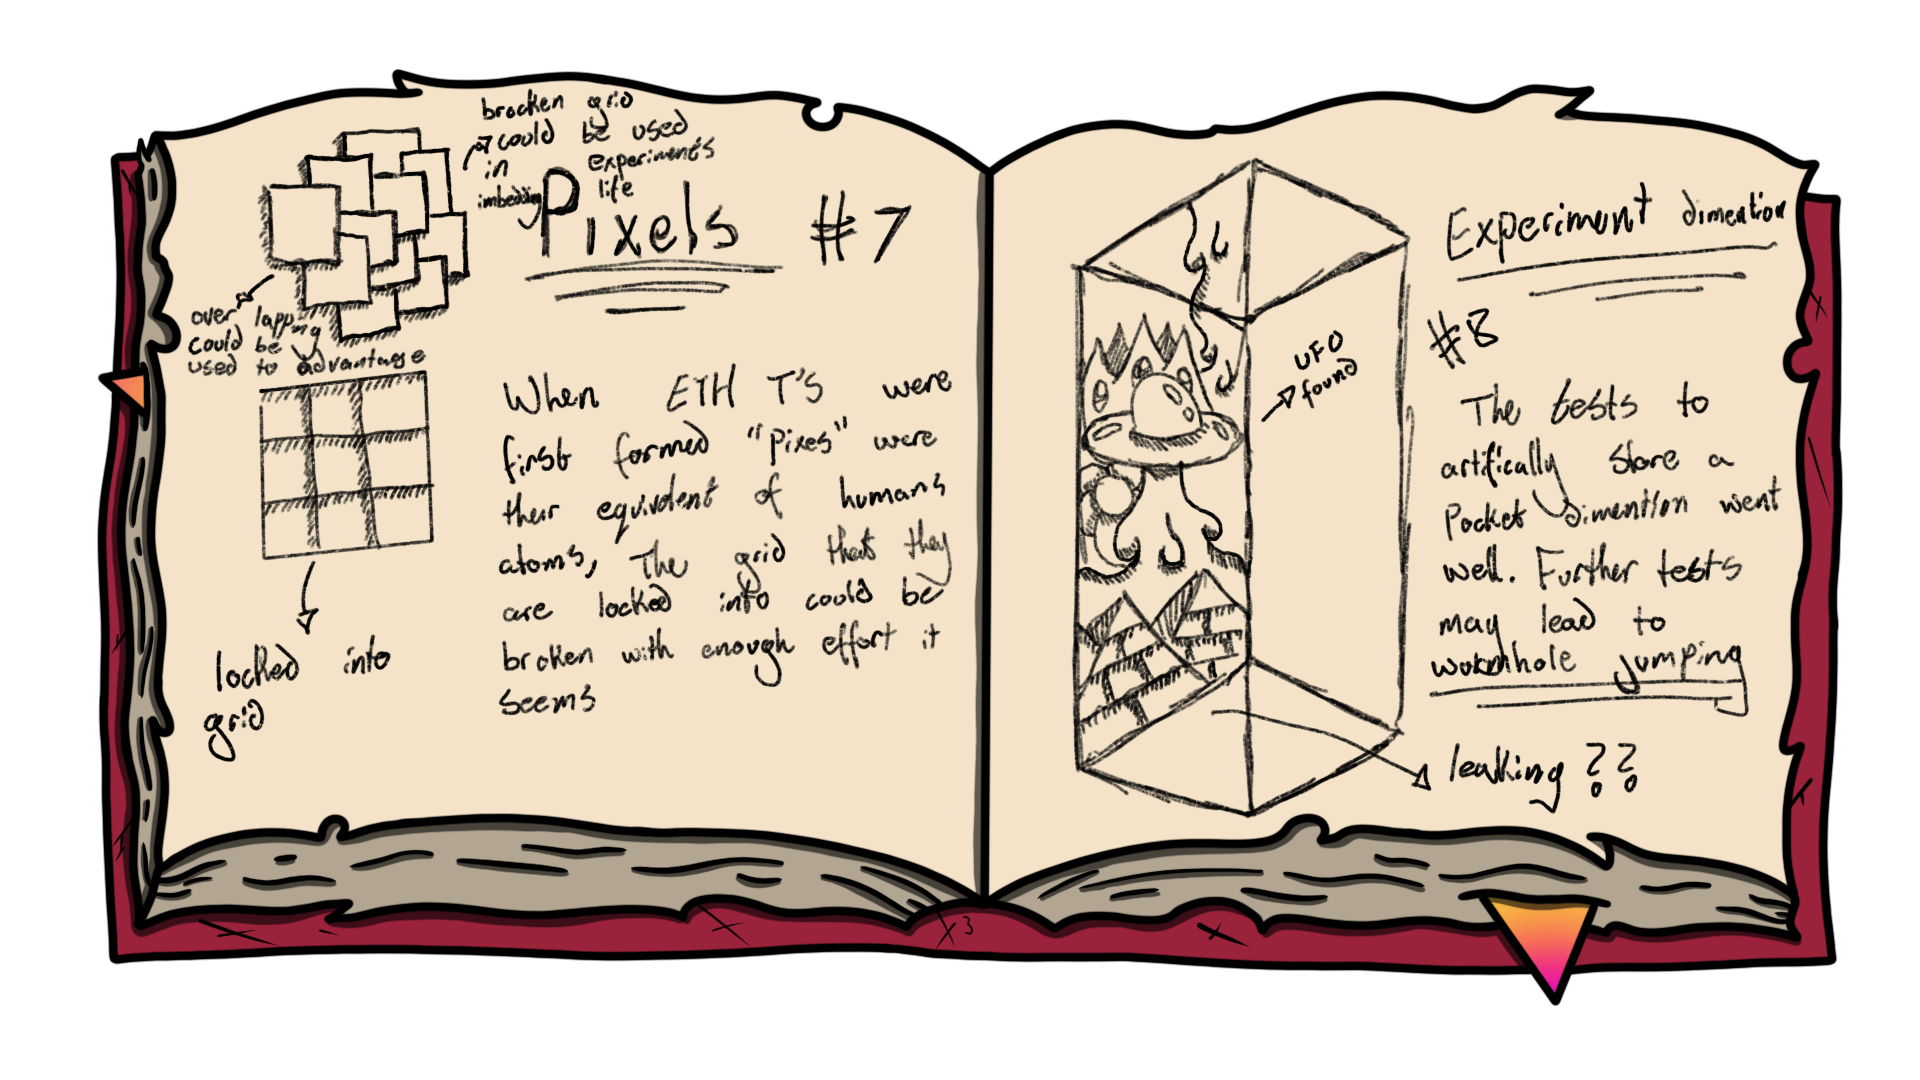 brocken grid
could be used
in experiments
imbedding life
Pixels #7
over lapping
could be
used to advantage
locked into
grid
When ETH T'S were
first formed "Pixes" were
their equivolent of humans
atoms, The grid that they
are locked into could be
broken with enough effort it
seems
3
Experiment dimention
#8
UFO
found
The tests to
artifically store a
Pocket dimention went
well. Further tests
may lead to
womhole jumping
leaking ??